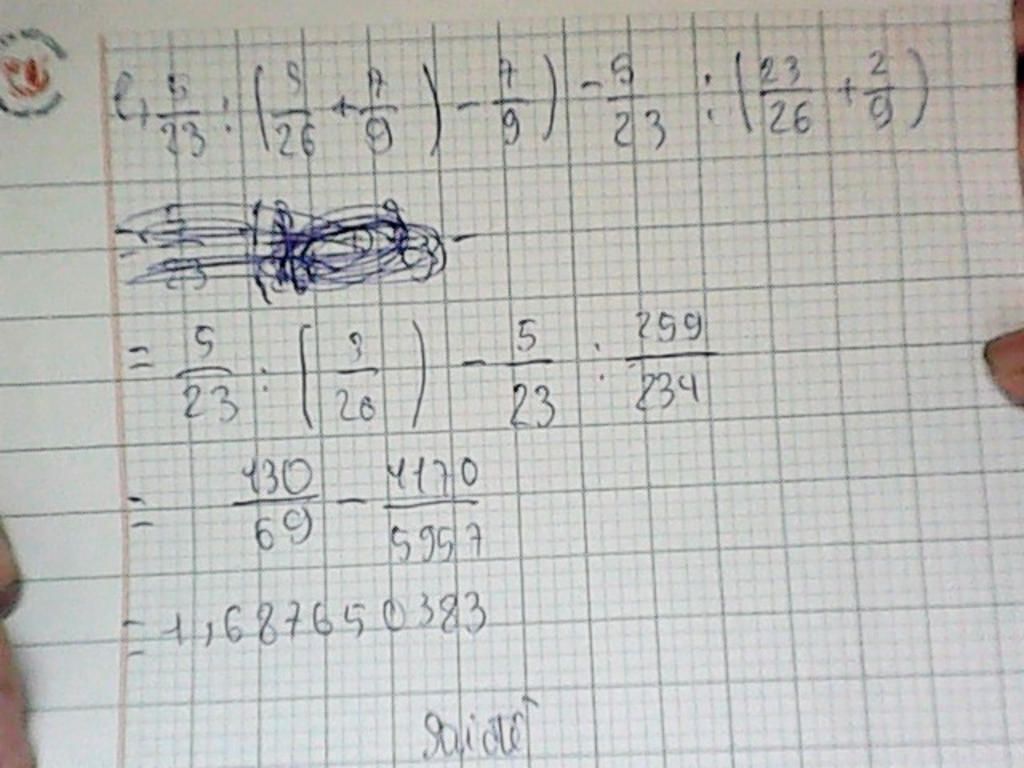 e, 5/23 : (5/26 + 7/9) - 7/9) - 5/23 : (23/26 + 2/9)
= 5/23 : (3/26) - 5/23 : 299/234
= 130/69 - 1170/5957
= 1,687650383